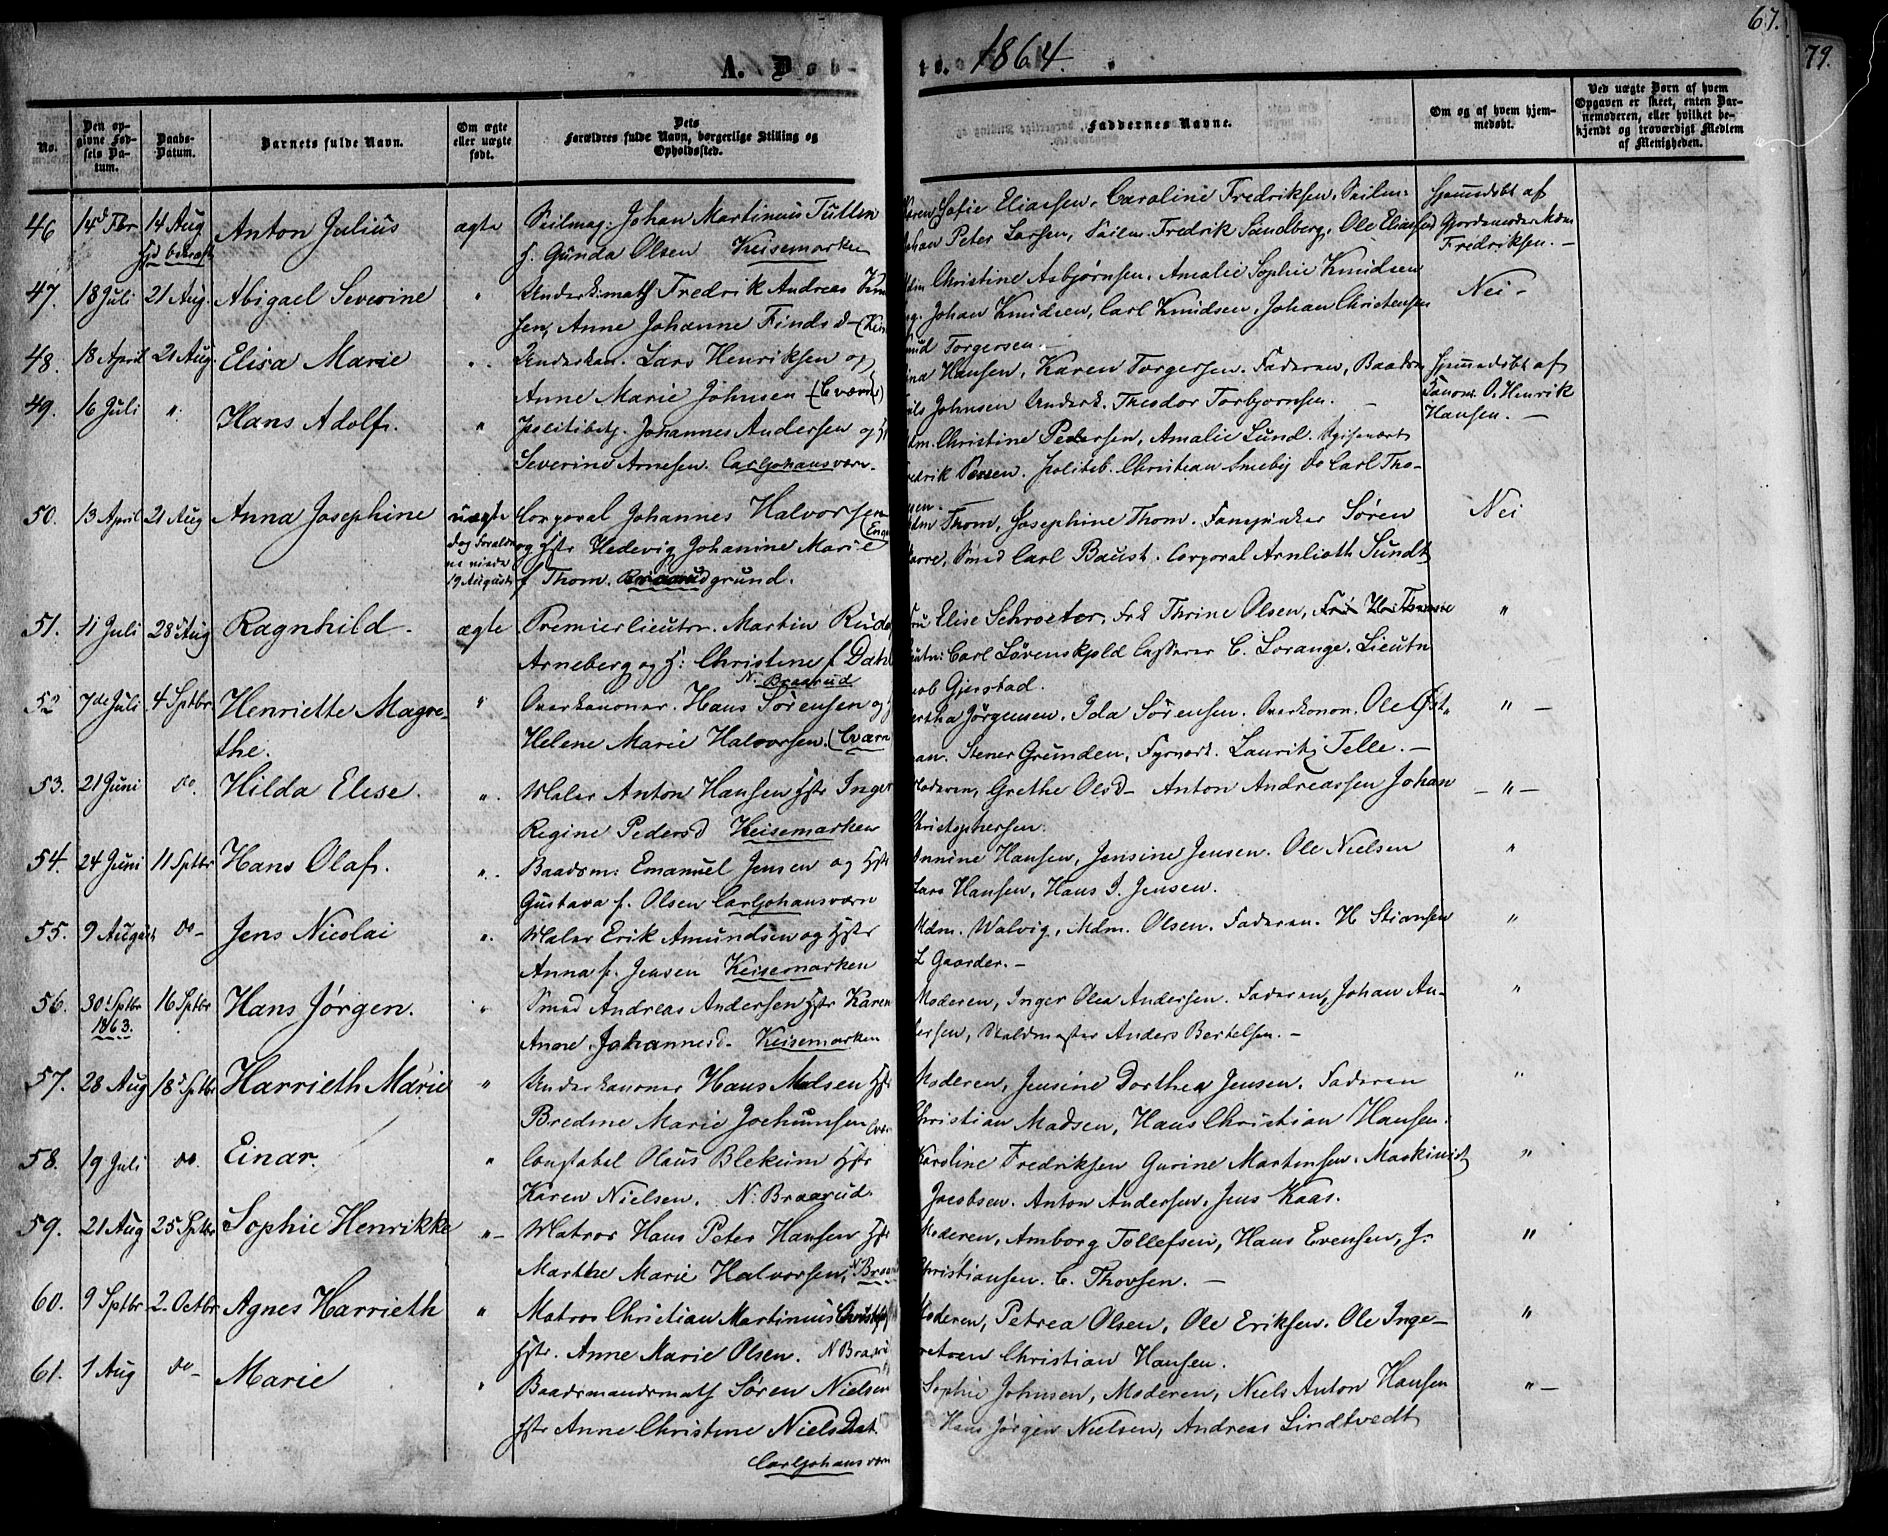 67.
79.
A. Døb-
te. 1864.
No.
Den op-
givne Fød-
sels Da-
tum.
Daabs-
Datum.
Barnets fulde Navn.
Om ægte
eller uægte
født.
Dets
Forældres fulde Navn, borgerlige Stilling og
Opholdssted.
Faddernes Navne.
Om og af hvem hjem-
medøbt.
Ved uægte Børn af hvem
Opgaven er skeet, enten Bar-
nemoderen, eller hvilket be-
kjendt og troværdigt Medlem
af Menigheden.
46 14d Fbr 14 Aug Anton Julius ægte Seilmag: Johan Martinius Tullin
f. Gunda Olsen Keisemarken
Sofie Eliassen, Caroline Fredriksen, Seilm:
Peter Larsen, Seilm. Fredrik Sandberg, Ole Eliassen
Hjemmedøbt af
Gjordemoder Mdm
Fredriksen. —
47. 18 Juli 21 Aug. Abigael Severine " Fredrik Andreas
Anne Johanne Finds d-
Christine Asbjørnsen, Amalie Sophie Knudsen
Johan Knudsen, Carl Knudsen, Johan Christensen
Torgersen.
Nei -
48. 18 April 21 Aug. Elisa Marie " Underkan. Lars Henriksen og
Anne Marie Johnsen
Hansen, Karen Torgersen. Faderen, Baadsm
Johnsen Underk. Theodor Torbjørnsen. —
Hjemmedøbt af
O. Henrik
Hansen. —
49. 16 Juli " Hans Adolf. " Politibetj. Johannes Andersen og
Severine Arnesen. Carljohansværn.
Christine Pedersen, Amalie Lund.
Politib. Christian Smeby do Carl Tho-
50. 13 April 21 Aug Anna Josephine uægte
19 August
Corporal Johannes Halvorsen
og Hstr Hedevig Johanine Marie
f Thom.
Thom, Josephine Thom. Søren
Smed Carl Baust. Corporal Arnlioth Sundt
Nei
51. 11 Juli 28 Aug Ragnhild. ægte Premierlieutn. Martin
Arneberg og H: Christine f Dahl
N. Braarud
Elise Schroeter, Frk Thrine Olsen,
Carl Løvenskjold Casserer C. Lorange. Lieutn
Gjerstad.
"
52 7de Juli 4 Sptbr Henriette Magre-
the.
" Overkanoner. Hans Sørensen og
Helene Marie Halvorsen.
Jørgensen. Ida Sørensen. Overkanon. Ole Øst-
Stener Grunden, Fyrvort. Lauritz Telle. —
" —
53. 21 Juni do. Hilda Elise. " Maler Anton Hansen Hstr Inger
Regine Pedersd Keisemarken
Moderen, Grethe Olsd- Anton Andreassen Johan
Christophersen.
— " —
54. 24 Juni 11 Sptbr Hans Olaf. " Baadsm: Emanuel Jensen og Hstr
Gustava f. Olsen Carljohansværn
Hansen, Jensine Jensen. Ole Nielsen
Lars Hansen, Hans J. Jensen.
"
55. 9 August do- Jens Nicolai " Maler Erik Amundsen og Hstr
Anna f. Jensen Keisemarken
Mdm. Walvig, Mdm. Olsen. Faderen. H Stiansen
L Gaarder. -
"
56. 30t Sptbr
1863.
16 Sptbr Hans Jørgen. " Smed Andreas Andersen Hstr Karen
Anne Johannesd. Keisemarken
Moderen, Inger Olea Andersen. Faderen, Johan An-
dersen, Anders Bertelsen. —
"
57. 28 Aug 18 Sptbr Harrieth Marie " Underkanoner Hans Madsen Hstr
Bredine Marie Jochumsen
Moderen, Jensine Dorthea Jensen. Faderen
Christian Madsen, Hans Christian Hansen.
"
58. 19 Juli do. Einar. " Constabel Olaus Blekum Hstr
Karen Nielsen. N. Braarud.
Karoline Fredriksen Gurine Martinsen. Maskinist
Jacobsen. Anton Andersen, Jens Kaas.
"
59. 21 Aug 25 Sptbr Sophie Henrikke " - Matros Hans Peter Hansen Hstr
Marthe Marie Halvorsen,
Moderen, Amborg Tollefsen, Hans Evensen, J.
Christiansen. C. Thovsen. —
"
60. 9 Sptbr 2 Octbr Agnes Harrieth " Matros Christian Martinius
Hstr. Anne Marie Olsen.
Moderen, Petrea Olsen, Ole Eriksen. Ole Inge-
Christian Hansen.
"
61. 1 Aug do- Marie " Baadsmandsmath Søren Nielsen
Hstr Anne Christine Nielsdat
Carljohansværn
Sophie Johnsen, Moderen, Niels Anton Hansen
Hans Jørgen Nielsen, Andreas Lindtvedt
" —